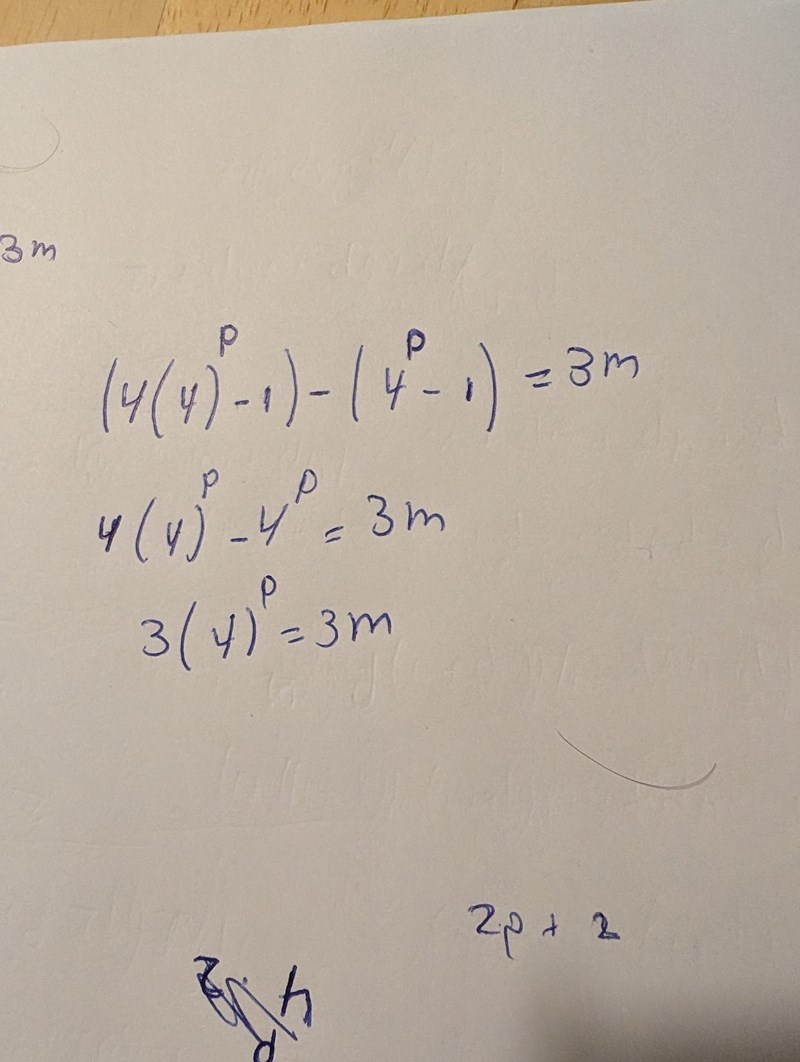 3m
(4(4)^p - 1) - (4^p - 1) = 3m
4(4)^p - 4^p = 3m
3(4)^p = 3m
2p + 2